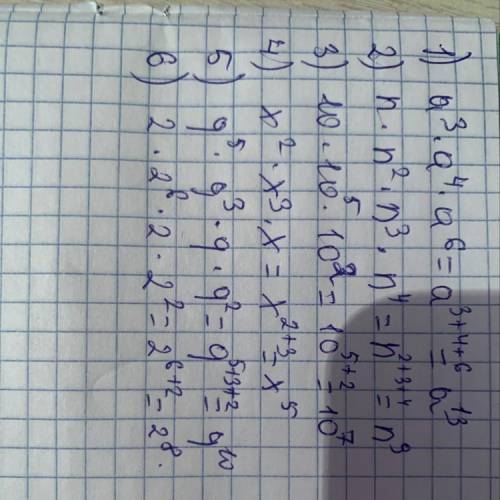 1) a³·a⁴·a⁶=a³⁺⁴⁺⁶=a¹³
2) n·n²·n³·n⁴=n²⁺³⁺⁴=n⁹
3) 10·10⁵·10²=10⁵⁺²=10⁷
4) x²·x³·x=x²⁺³=x⁵
5) q⁵·q³·q·q²=q⁵⁺³⁺²=q¹⁰
6) 2·2⁶·2·2²=2⁶⁺²=2⁸.